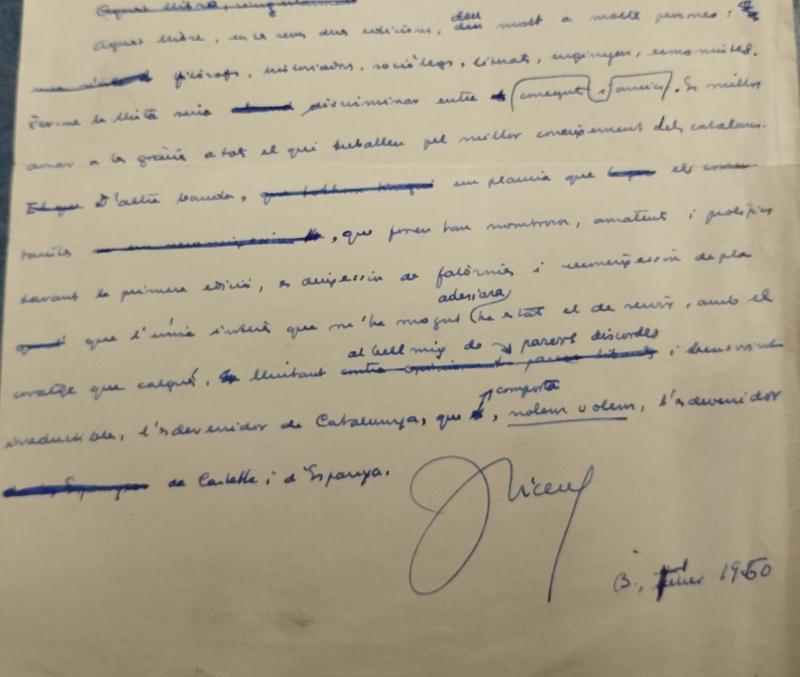 Aquest llibre,
Aquest llibre, en les seves dues edicions, deu molt a moltes persones:
filòsofs, historiadors, sociòlegs, literats, enginyers, economistes.
Fer-ne la llista seria discriminar entre coneguts i amics. És millor
donar a les gràcies a tot el qui treballen pel millor coneixement dels catalans.
D'altra banda, em plauria que els comen-
taristes , que foren tan nombrosos, amatents i prolífics
davant la primera edició, es deixessin de falòrnies i reconeixessin de pla
que l'únic interès que m'ha mogut adesiara ha estat el de servir, amb el
coratge que calgués, lluitant al bell mig de parers discordes i
irreductibles, l'esdevenidor de Catalunya, que comporta, nolem volem, l'esdevenidor
de Castella i d'Espanya.
JVicens
B., juliol 1960